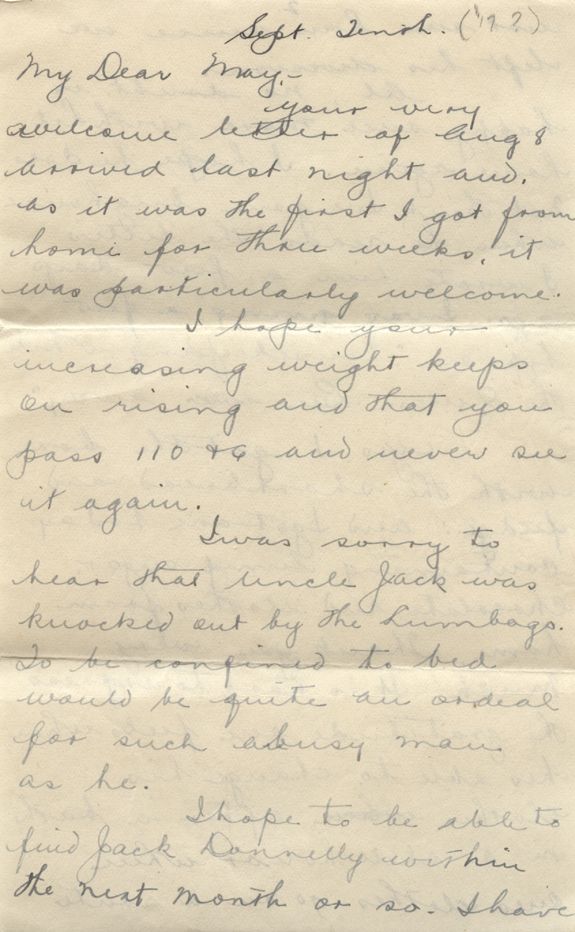 Sept. Tenth. ('17?)
My Dear May,-
your very
welcome letter of Aug 8
arrived last night and,
as it was the first I got from
home for three weeks, it
was particularly welcome.
I hope your
increasing weight keeps
on rising and that you
pass 110 and never see
it again.
I was sorry to
hear that Uncle Jack was
knocked out by the Lumbago.
To be confined to bed
would be quite an ordeal
for such a busy man
as he.
I hope to be able to
find Jack Donnelly within
the next month or so. I have